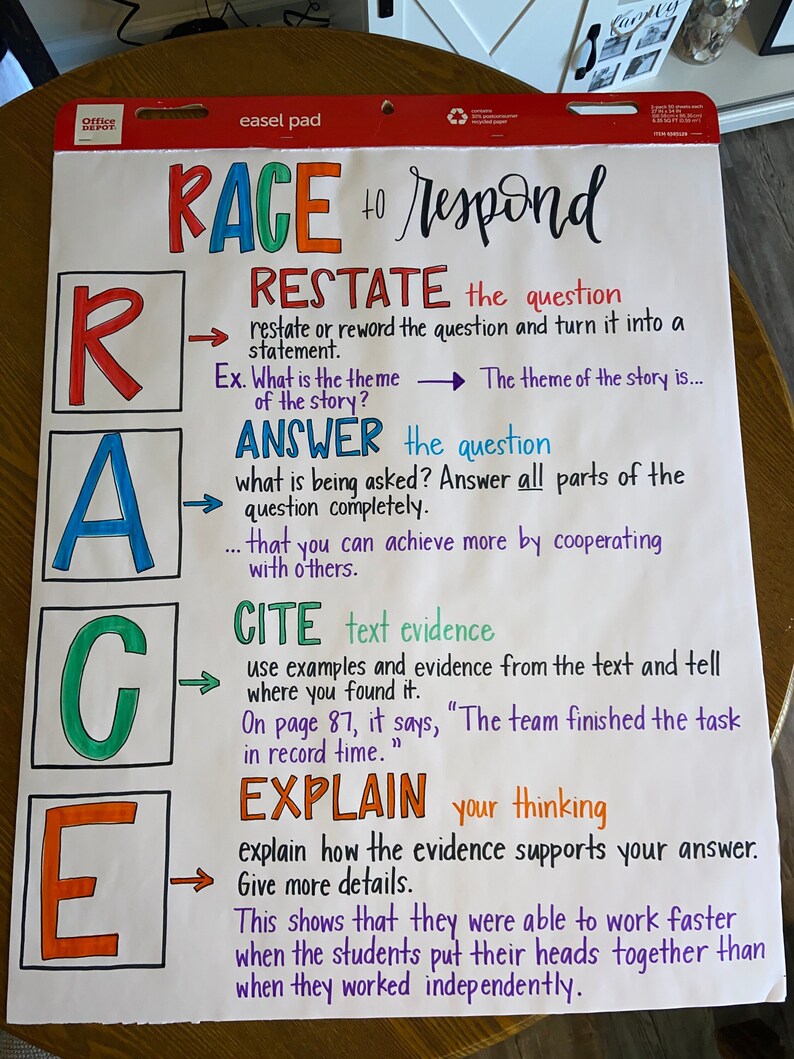 family
Office
DEPOT.
easel pad
contains
30% postconsumer
recycled paper
2-pack 50 sheets each
27 IN x 34 IN
6.35 SQ FT (0.59 m²)
ITEM 6585129
RACE to respond
R
RESTATE the question
restate or reword the question and turn it into a
statement.
Ex. What is the theme → The theme of the story is...
of the story?
A
ANSWER the question
what is being asked? Answer all parts of the
question completely.
... that you can achieve more by cooperating
with others.
C
CITE text evidence
use examples and evidence from the text and tell
where you found it.
On page 87, it says, "The team finished the task
in record time."
E
EXPLAIN your thinking
explain how the evidence supports your answer.
Give more details.
This shows that they were able to work faster
when the students put their heads together than
when they worked independently.